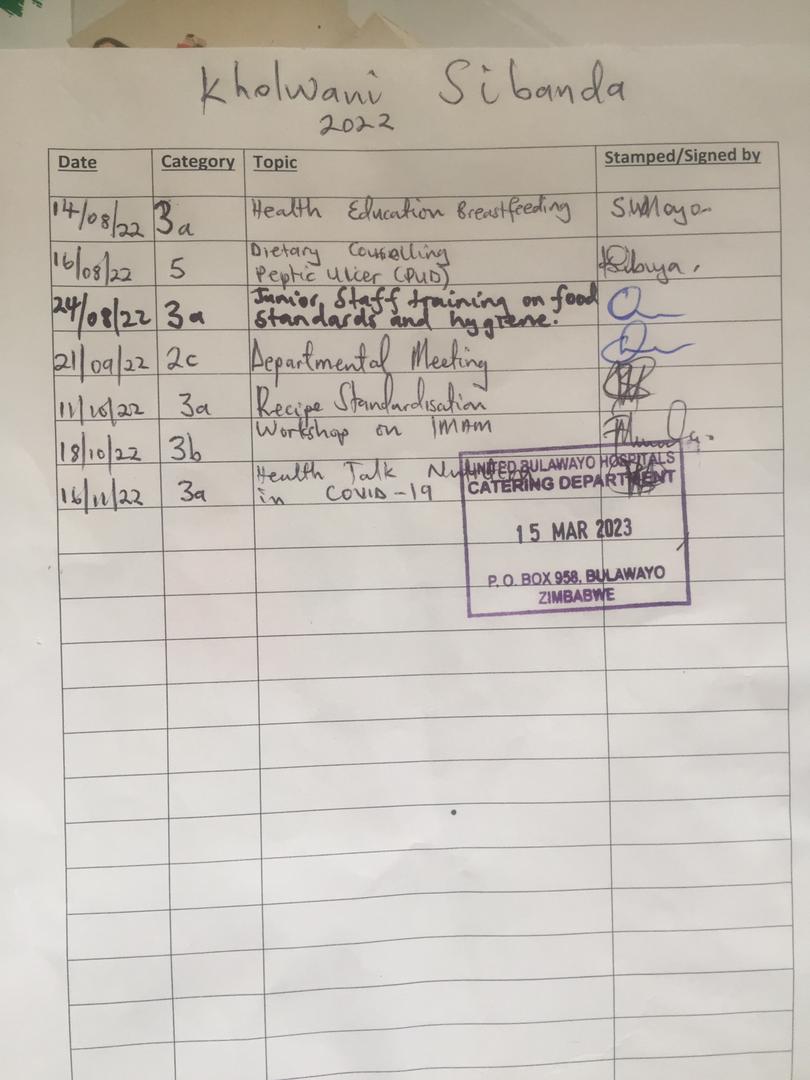 Kholwani Sibanda
2022
Date Category Topic Stamped/Signed by
14/08/22 3a Health Education Breastfeeding S.W Moyo
16/08/22 5 Dietary Counselling
Peptic Ulcer (PUD)
24/08/22 3a Junior Staff training on food
standards and hygiene.
21/09/22 2c Departmental Meeting
11/10/22 3a Recipe Standardisation
18/10/22 3b Workshop on IMAM
16/11/22 3a Health Talk
in COVID-19
UNITED BULAWAYO HOSPITALS
CATERING DEPARTMENT
15 MAR 2023
P.O. BOX 958, BULAWAYO
ZIMBABWE